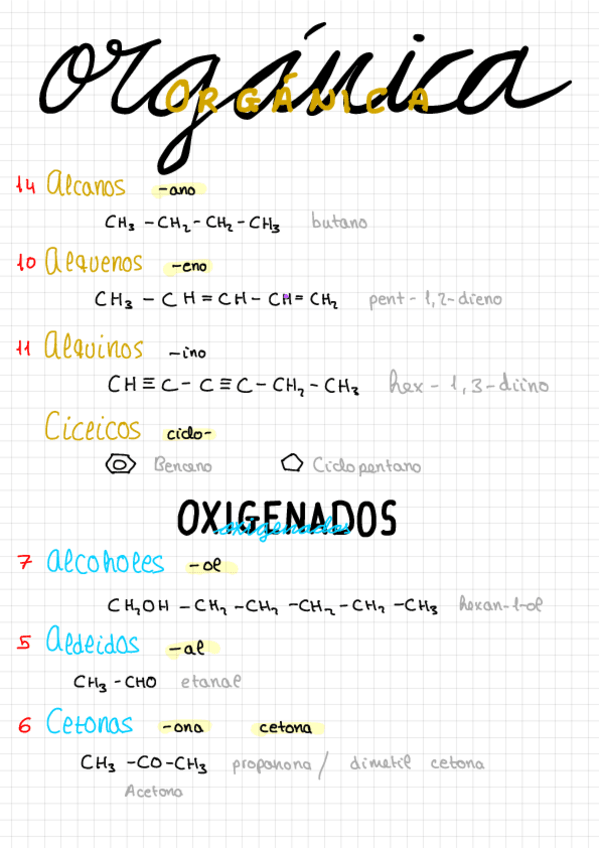 orgánica
ORGÁNICA
14 Alcanos -ano
CH₃ -CH₂-CH₂-CH₃ butano
10 Alquenos -eno
CH₃ - CH=CH- CH=CH₂ pent-1,2-dieno
11 Alquinos -ino
CH≡C- C≡C-CH₂-CH₃ hex-1,3-diino
Cíclicos ciclo-
Benceno Ciclopentano
OXIGENADOS
oxigenados
7 Alcoholes -ol
CH₂OH -CH₂ -CH₂ -CH₂-CH₂ -CH₃ hexan-1-ol
5 Aldeidos -al
CH₃ -CHO etanal
6 Cetonas -ona cetona
CH₃ -CO-CH₃ propanona / dimetil cetona
Acetona